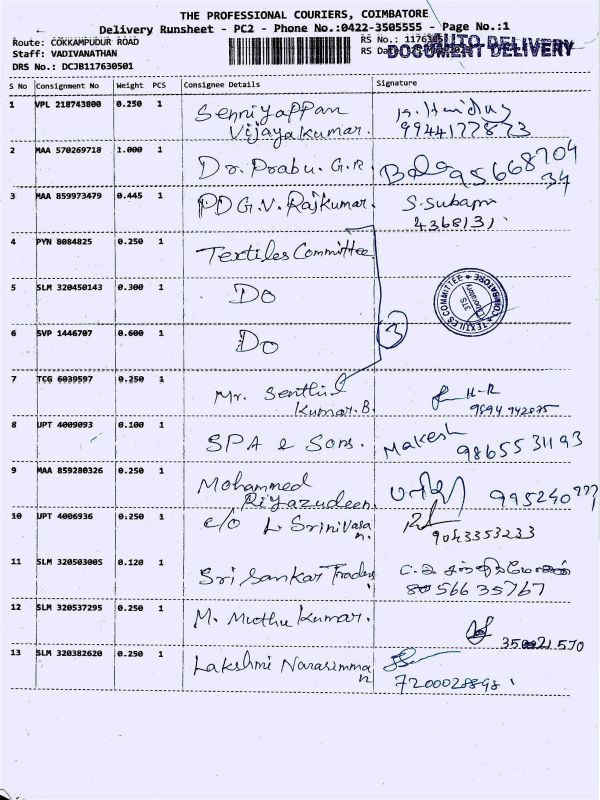 THE PROFESSIONAL COURIERS, COIMBATORE
Delivery Runsheet - PC2 - Phone No.:0422-3505555 - Page No.:1
Route: COKKAMPUDUR ROAD
RS No.: 1176305
AUTO DELIVERY
Staff: VADIVANATHAN
RS Da
DOCUMENT DELIVERY
DRS No.: DCJB117630501
S No Consignment No Weight PCS Consignee Details Signature
1 VPL 218743800 0.250 1 Senniyappan Vijayakumar.
9944177873
2 MAA 570269718 1.000 1 Dr. Prabu. G.R.
Bala 9566870434
3 MAA 859973479 0.445 1 PD G.V. Rajkumar.
4368131.
4 PYN 8084825 0.250 1 Textiles Committee
5 SLM 320450143 0.300 1 Do
TEXTILES COMMITTEE COIMBATORE Laboratory
6 SVP 1446707 0.600 1 Do
3
7 TCG 6039597 0.250 1 Mr. Senthil Kumar. B.
H-R
8 UPT 4009093 0.100 1 SPA & Sons.
Makesh 9865531193
9 MAA 859280326 0.250 1 Mohammed Riyazudeen.
10 UPT 4006936 0.250 1 c/o L. Srinivasan.
9043353233
11 SLM 320503005 0.120 1 Sri Sankar Traders
12 SLM 320537295 0.250 1 M. Muthu Kumar.
13 SLM 320382620 0.250 1 Lakshmi Narasimman